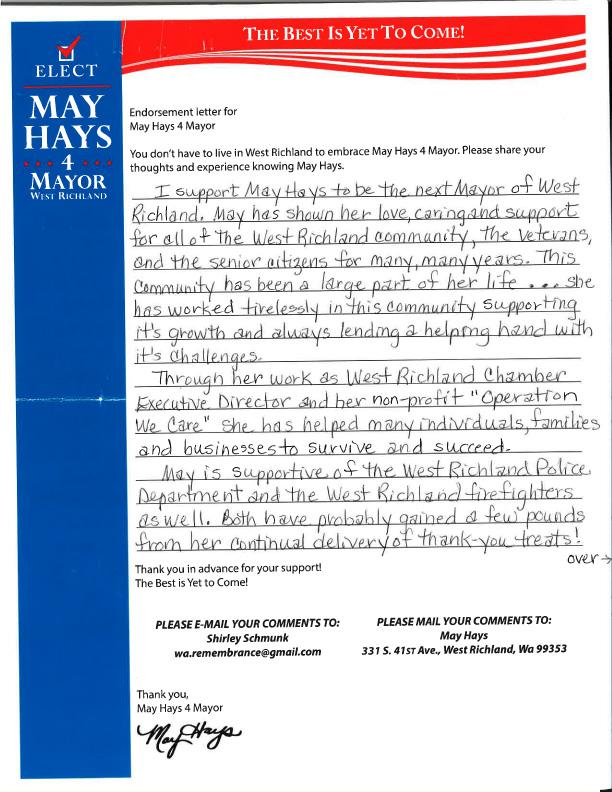 THE BEST IS YET TO COME!
ELECT
MAY
HAYS
4
MAYOR
WEST RICHLAND
Endorsement letter for
May Hays 4 Mayor
You don't have to live in West Richland to embrace May Hays 4 Mayor. Please share your
thoughts and experience knowing May Hays.
I support May Hays to be the next Mayor of West
Richland. May has shown her love, caring and support
for all of the West Richland community, the veterans,
and the senior citizens for many, many years. This
community has been a large part of her life ... she
has worked tirelessly in this community supporting
it's growth and always lending a helping hand with
it's challenges.
Through her work as West Richland Chamber
Executive Director and her non-profit "Operation
We Care" she has helped many individuals, families
and businesses to survive and succeed.
May is supportive of the West Richland Police
Department and the West Richland firefighters
as well. Both have probably gained a few pounds
from her continual delivery of thank-you treats!
over→
Thank you in advance for your support!
The Best is Yet to Come!
PLEASE E-MAIL YOUR COMMENTS TO:
Shirley Schmunk
wa.remembrance@gmail.com
PLEASE MAIL YOUR COMMENTS TO:
May Hays
331 S. 41ST Ave., West Richland, Wa 99353
Thank you,
May Hays 4 Mayor
May Hays